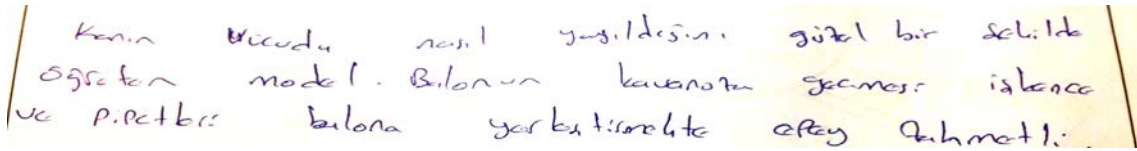 Kanın vücuda nasıl yayıldığını güzel bir şekilde
öğreten model. Balonun kavanoza geçmesi işkence
ve pipetleri balona yerleştirmekte epey zahmetli.